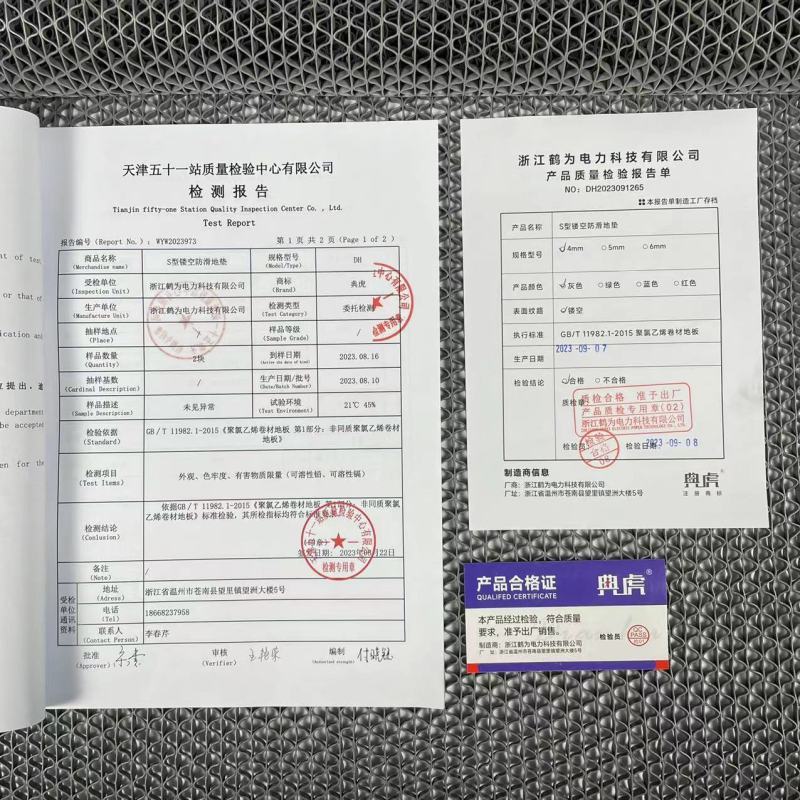 ent of test
or that of
ication and
位提出，逾
department
be accepted
en for the
天津五十一站质量检验中心有限公司
检 测 报 告
Tianjin fifty-one Station Quality Inspection Center Co. , Ltd.
Test Report
报告编号 (Report No.) : WYW2023973 第 1 页 共 2 页 (Page 1 of 2 )
商品名称 (Merchandise name) S型镂空防滑地垫 规格型号 (Model/Type) DH
受检单位 (Inspection Unit) 浙江鹤为电力科技有限公司 商标 (Brand) 典虎
生产单位 (Manufacture Unit) 浙江鹤为电力科技有限公司 检测类型 (Test Category) 委托检测
抽样地点 (Place) / 样品等级 (Sample Grade) /
样品数量 (Quantity) 2块 到样日期 2023.08.16
抽样基数 (Cardinal Description) / 生产日期/批号 (Date/Batch Number) 2023.08.10
样品描述 (Sample Description) 未见异常 试验环境 (Test Environment) 21℃ 45%
检验依据 (Standard) GB/T 11982.1-2015《聚氯乙烯卷材地板 第1部分：非同质聚氯乙烯卷材
地板》
检测项目 (Test Items) 外观、色牢度、有害物质限量（可溶性铅、可溶性镉）
检测结论 (Conlusion) 依据GB/T 11982.1-2015《聚氯乙烯卷材地板 第1部分：非同质聚氯
乙烯卷材地板》标准检验，其所检指标均符合标准要求。
签发日期：2023年08月22日
检测专用章
备注 (Note) /
受检单位通讯资料
地址 (Adress) 浙江省温州市苍南县望里镇望洲大楼5号
电话 (Tel) 18668237958
联系人 (Contact Person) 李春芹
批准 (Approver) 审核 (Verifier) 编制
浙江鹤为电力科技有限公司
产品质量检验报告单
NO: DH2023091265
本报告单制造工厂存档
产品名称 S型镂空防滑地垫
规格型号 4mm 5mm 6mm
产品颜色 灰色 绿色 蓝色 红色
表面纹路 镂空
执行标准 GB/T 11982.1-2015 聚氯乙烯卷材地板
生产日期 2023-09-07
检验结论 合格 不合格
质检章
质检合格 准予出厂
产品质检专用章(02)
浙江鹤为电力科技有限公司
检验员 检验日期 2023-09-08
检验
合格
08
制造商信息
厂商：浙江鹤为电力科技有限公司
厂址：浙江省温州市苍南县望里镇望洲大楼5号
典虎®
注册商标
产品合格证
QUALIFED CERTIFICATE
典虎®
本产品经过检验，符合质量
要求，准予出厂销售。
检验员
QC
PASS
制造商：浙江鹤为电力科技有限公司
厂 址：浙江省温州市苍南县望里镇望洲大楼5号